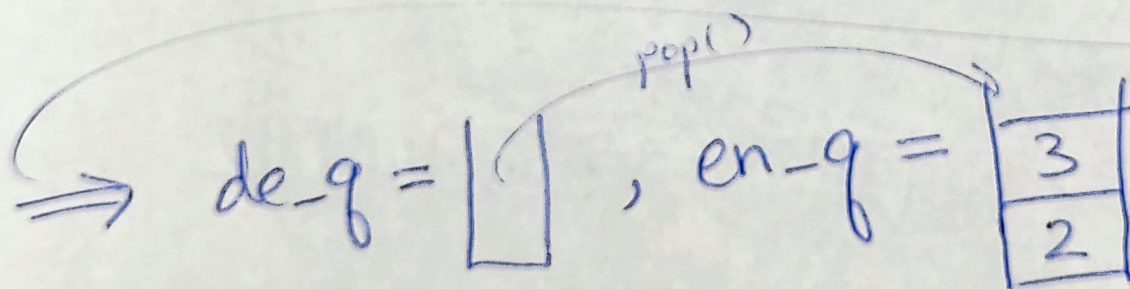 pop()
⇒ de_q = [ ] , en_q =
3
2